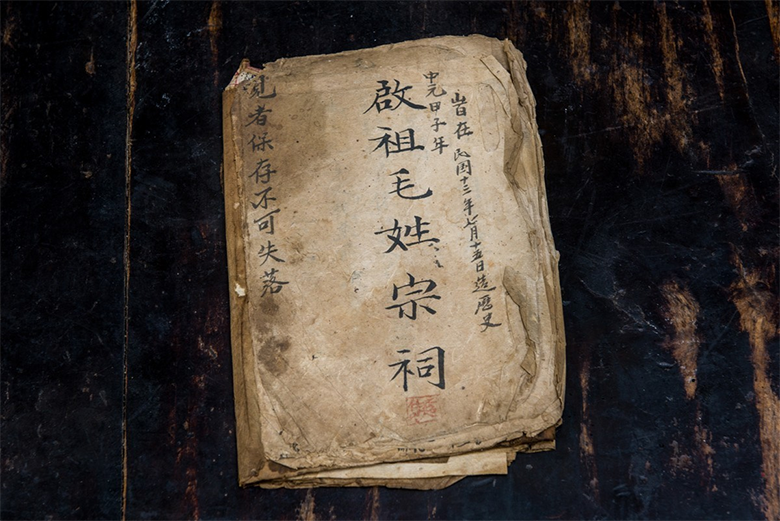 旹在民国十三年七月十五日造歷史
中元甲子年
啟祖毛姓宗祠
者保存不可失落